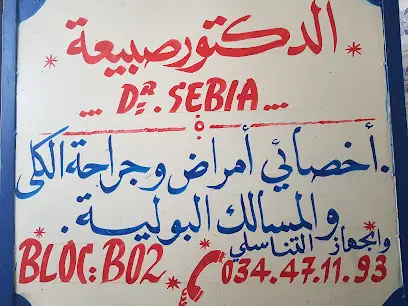 الدكتور صبيعة
... Dr. SEBIA ...
. أخصائي أمراض وجراحة الكلى
والمسالك البولية .
والجهاز التناسلي
BLOC: B02 034.47.11.93